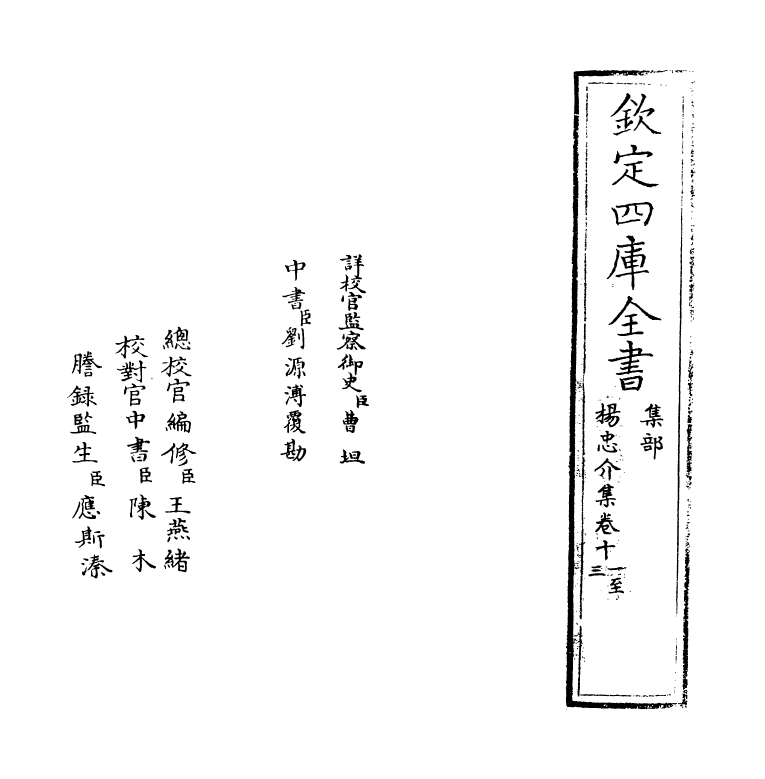 欽定四庫全書
集部
楊忠介集卷十一至三
詳校官監察御史臣曹坦
中書臣劉源溥覆勘
總校官編修臣王燕緒
校對官中書臣陳木
謄錄監生臣應斯溱